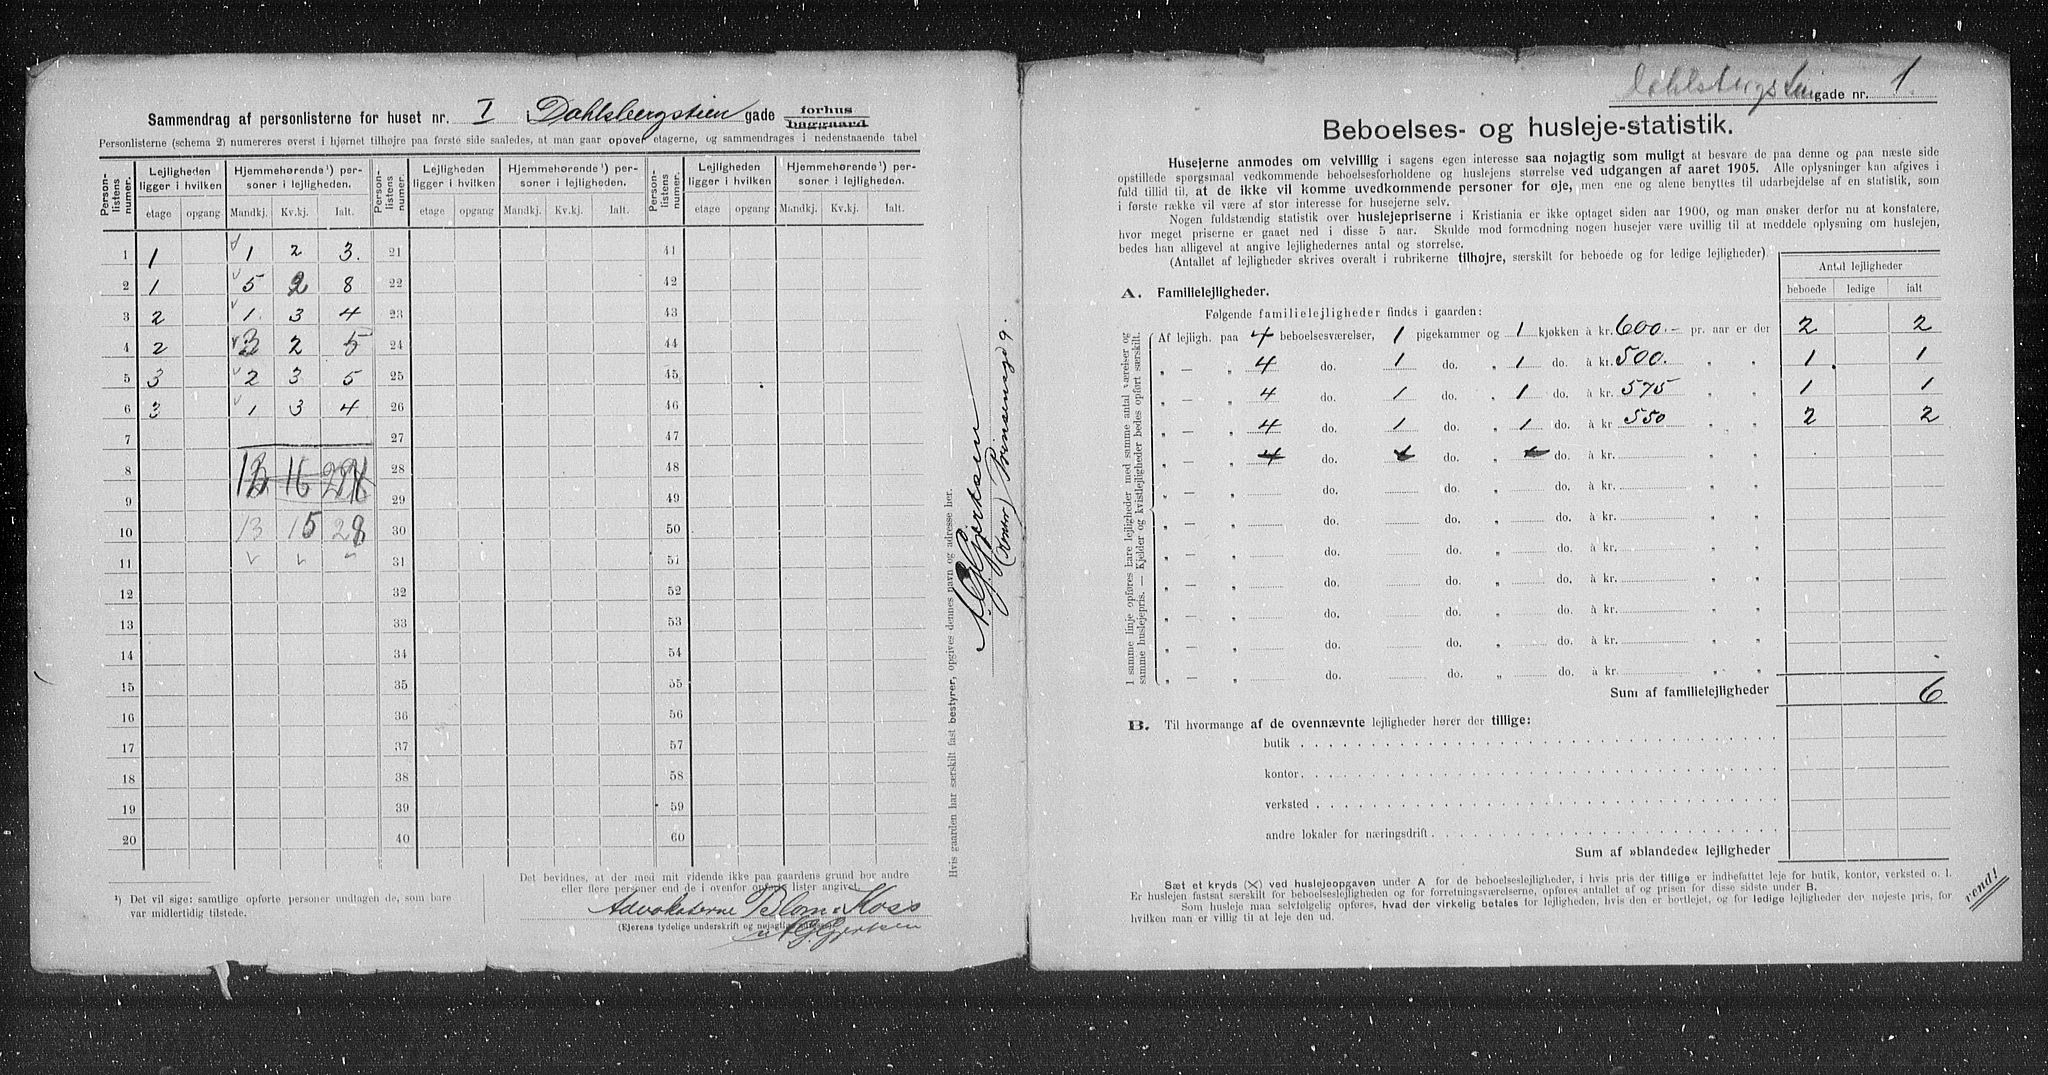 Sammendrag af personlisterne for huset nr. I Dahlsbergstien gade forhus baggaard
Personlisterne (schema 2) numereres øverst i hjørnet tilhøjre paa første side saaledes, at man gaar opover etagerne, og sammendrages i nedenstaaende tabel
Person-listens numer. Lejligheden ligger i hvilken Hjemmehørende¹) personer i lejligheden. Person-listens numer. Lejligheden ligger i hvilken Hjemmehørende¹) personer i lejligheden. Person-listens numer. Lejligheden ligger i hvilken Hjemmehørende¹) personer i lejligheden.
etage opgang Mandkj. Kv.kj. Ialt. etage opgang Mandkj. Kv.kj. Ialt. etage opgang Mandkj. Kv.kj. Ialt.
1 1 1 2 3. 21 41
2 1 5 2 8 22 42
3 2 1. 3 4 23 43
4 2 3 2 5 24 44
5 3 2 3 5 25 45
6 3 1 3 4 26 46
7 27 47
8 16 28 48
9 29 49
10 13 15 28 30 50
11 31 51
12 32 52
13 33 53
14 34 54
15 35 55
16 36 56
17 37 57
18 38 58
19 39 59
20 40 60
¹) Det vil sige: samtlige opførte personer undtagen de, som bare var midlertidig tilstede.
Det bevidnes, at der med mit vidende ikke paa gaardens grund bor andre
eller flere personer end de i ovenfor opførte lister angivet.
Advokaterne Blom & Koss
(Ejerens tydelige underskrift og nøjagtig
v/ A. G. Gjertsen
Hvis gaarden har særskilt fast bestyrer, opgives dennes navn og adresse her.
A. G. Gjertsen
(kontor) Prinsensgd 9.
Dahlsbergstien gade nr. 1.
Beboelses- og husleje-statistik.
Husejerne anmodes om velvillig i sagens egen interesse saa nøjagtig som muligt at besvare de paa denne og paa næste side
opstillede spørgsmaal vedkommende beboelsesforholdene og huslejens størrelse ved udgangen af aaret 1905. Alle oplysninger kan afgives i
fuld tillid til, at de ikke vil komme uvedkommende personer for øje, men ene og alene benyttes til udarbejdelse af en statistik, som
i første række vil være af stor interesse for husejerne selv.
Nogen fuldstændig statistik over huslejepriserne i Kristiania er ikke optaget siden aar 1900, og man ønsker derfor nu at konstatere,
hvor meget priserne er gaaet ned i disse 5 aar. Skulde mod formodning nogen husejer være uvillig til at meddele oplysning om huslejen,
bedes han alligevel at angive lejlighedernes antal og størrelse.
(Antallet af lejligheder skrives overalt i rubrikerne tilhøjre, særskilt for beboede og for ledige lejligheder)
Antal lejligheder
beboede ledige ialt
A. Familielejligheder.
Følgende familielejligheder findes i gaarden:
I samme linje opføres bare lejligheder med samme antal værelser og
samme huslejepris. — Kjelder og kvistlejligheder bedes opført særskilt.
Af lejligh. paa 4 beboelsesværelser, 1 pigekammer og 1 kjøkken à kr. 600.- pr. aar er der 2 2
„ — „ 4 do. 1 do. „ 1 do. à kr. 500. „ „ 1 1
„ — „ 4 do. 1 do. „ 1 do. à kr. 575 „ „ 1 1
„ — „ 4 do. 1 do. „ 1 do. à kr 550 „ „ 2 2
„ — „ 4 do. 1 do. „ 1 do. à kr. „ „
„ — „ do. do. „ do. à kr. „ „
„ — „ do. do. „ do. à kr. „ „
„ — „ do. do. „ do. à kr. „ „
„ — „ do. do. „ do. à kr. „ „
„ — „ do. do. „ do. à kr. „ „
„ — „ do. do. „ do. à kr. „ „
„ — „ do. do. „ do. à kr. „ „
Sum af familielejligheder 6
B. Til hvormange af de ovennævnte lejligheder hører der tillige:
butik
kontor
verksted
andre lokaler for næringsdrift
Sum af »blandede« lejligheder
Sæt et kryds (×) ved huslejeopgaven under A for de beboelseslejligheder, i hvis pris der tillige er indbefattet leje for butik, kontor, verksted o. l.
Er huslejen fastsat særskilt for beboelseslejligheden og for forretningsværelserne, opføres antallet af og prisen for disse sidste under B.
Som husleje maa selvfølgelig opføres, hvad der virkelig betales for lejligheden, hvis den er bortlejet, og for ledige lejligheder den nøjeste pris, for
hvilken man er villig til at leje den ud.
vend!